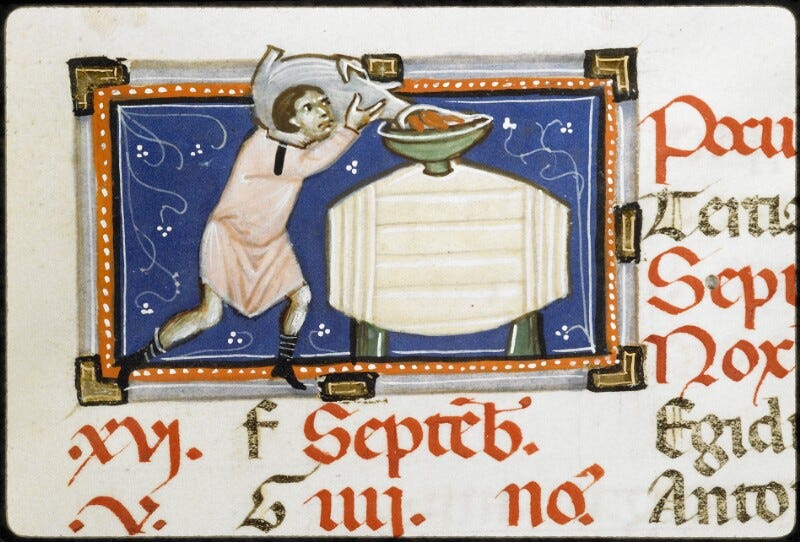 Pocu
Tertia
Sept
Nox
.xvj. f Septēb. Egidi
.v. G iiij. no. Anto